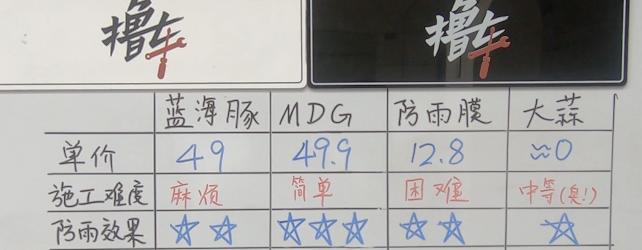 撸车 撸车
蓝海豚 MDG 防雨膜 大蒜
单价 49 49.9 12.8 ≈0
施工难度 麻烦 简单 困难 中等(臭!)
防雨效果 ☆☆ ☆☆☆ ☆☆ ☆